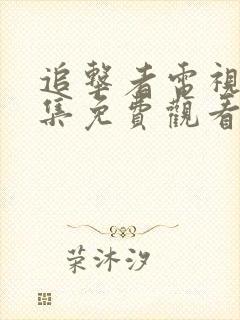 追擊者電視
集免費觀看
荣沐汐